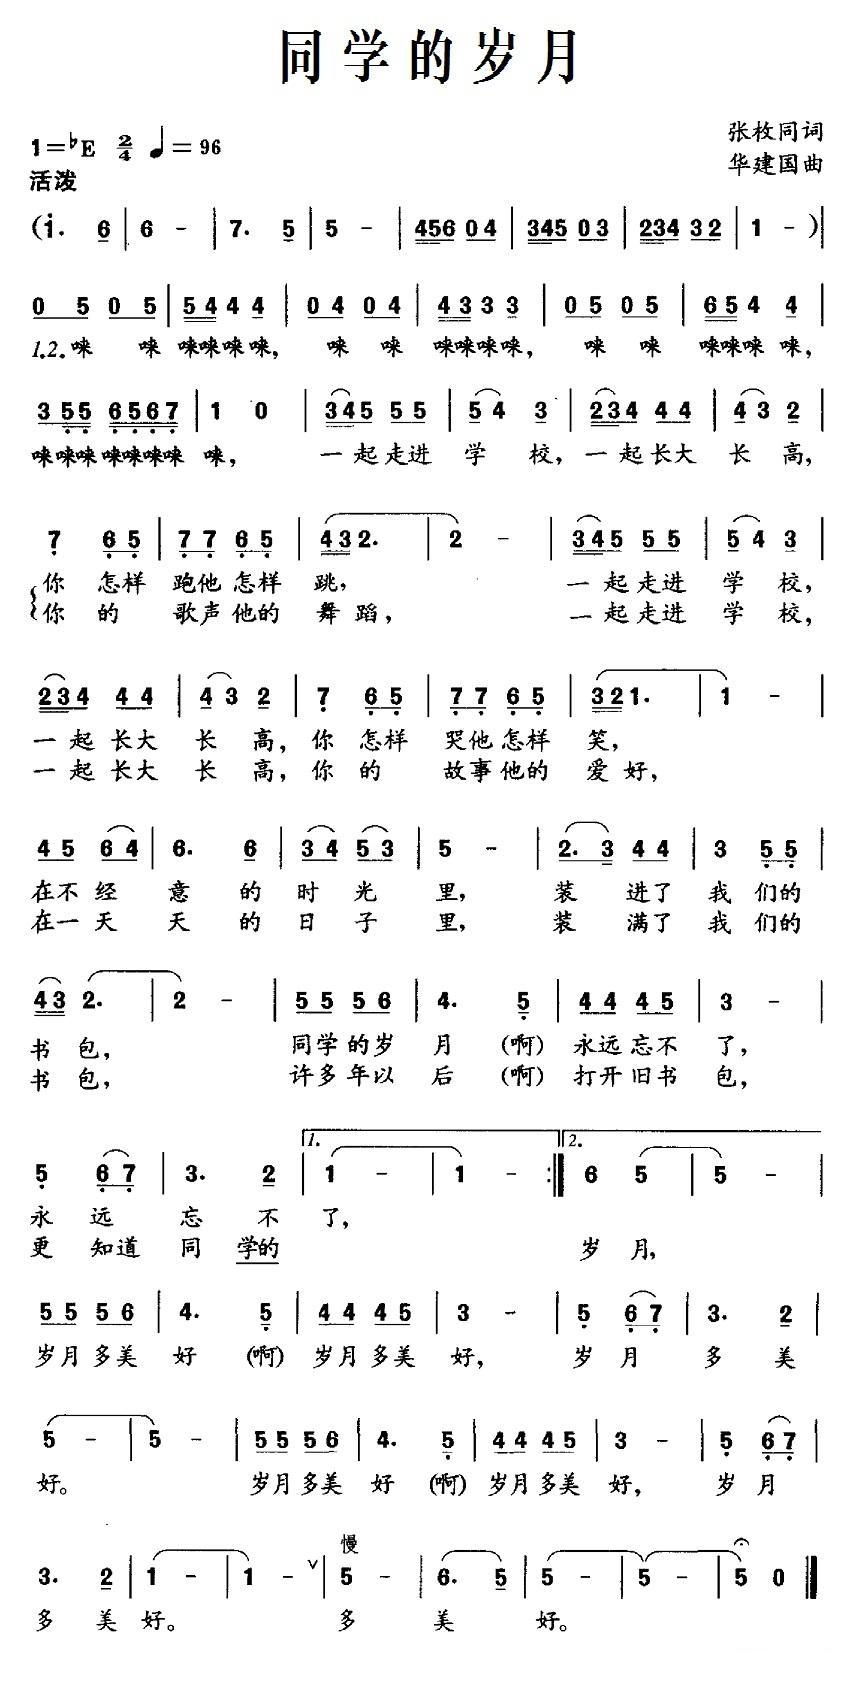 同学的岁月
1=♭E 2/4 ♩=96
张枚同词
活泼
华建国曲
(i. 6 | 6 - | 7. 5 | 5 - | 456 04 | 345 03 | 234 32 | 1 - )|
0 5 0 5 | 5444 4 | 04 04 | 4333 3 | 05 05 | 654 4 |
1.2.唻 唻 唻唻唻唻, 唻 唻 唻唻唻唻, 唻 唻 唻唻唻 唻,
3 55 6567 | 1 0 | 345 55 | 54 3 | 234 44 | 43 2 |
唻唻唻 唻唻唻唻 唻, 一起走进 学 校, 一起长大 长 高,
7 65 | 77 65 | 432. | 2 - | 345 55 | 54 3 |
你 怎样 跑他怎样 跳, 一起走进 学 校,
你 的 歌声他的 舞蹈, 一起走进 学 校,
234 44 | 43 2 | 7 65 | 77 65 | 321. | 1 - |
一起长大 长 高, 你 怎样 哭他怎样 笑,
一起长大 长 高, 你 的 故事他的 爱好,
45 64 | 6. 6 | 34 53 | 5 - | 2. 3 44 | 3 55 |
在不经 意 的 时 光 里, 装 进了 我 们的
在一天 天 的 日 子 里, 装 满了 我 们的
43 2. | 2 - | 55 56 | 4. 5 | 44 45 | 3 - |
书 包, 同学的岁 月 (啊) 永远忘不 了,
书 包, 许多年以 后 (啊) 打开旧书 包,
1. 2.
5 67 | 3. 2 | 1 - | 1 - :| 6 5 | 5 - |
永 远 忘 不 了,
更 知道 同 学的 岁 月,
55 56 | 4. 5 | 44 45 | 3 - | 5 67 | 3. 2 |
岁月多美 好 (啊) 岁月多美 好, 岁 月 多 美
5 - | 5 - | 55 56 | 4. 5 | 44 45 | 3 - | 5 67 |
好。 岁月多美 好 (啊) 岁月多美 好, 岁 月
慢
3. 2 | 1 - | 1 - ∨| 5 - | 6. 5 | 5 - | 5 - | 5 0 ‖
多 美 好。 多 美 好。